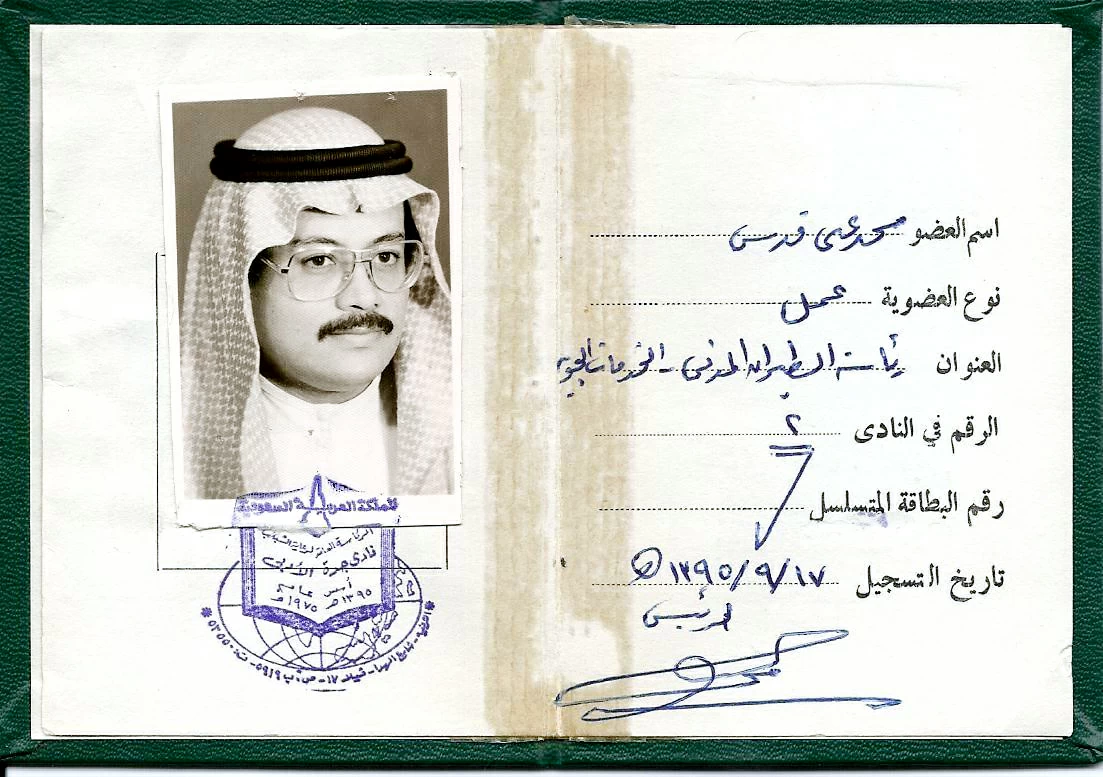 اسم العضو محمد علي قدس
نوع العضوية عامل
العنوان رئاسة الطيران المدني - الخدمات الجوية
الرقم في النادى ٢
رقم البطاقة المتسلسل
تاريخ التسجيل ١٣٩٥/٩/١٧ هـ
الرئيس
المملكة العربية السعودية
الرئاسة العامة لرعاية الشباب
نادي جدة الأدبي
أسس عام
١٣٩٥هـ ١٩٧٥م